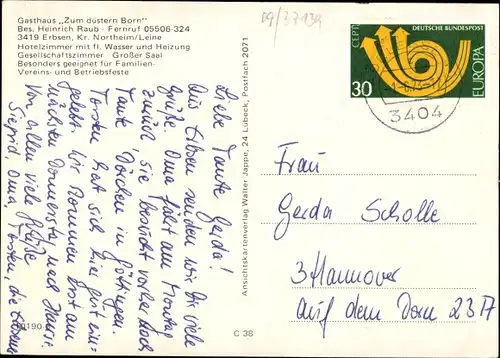 Gasthaus „Zum düstern Born"
Bes. Heinrich Raub · Fernruf 05506-324
3419 Erbsen, Kr. Northeim/Leine
Hotelzimmer mit fl. Wasser und Heizung
Gesellschaftszimmer Großer Saal
Besonders geeignet für Familien-
Vereins- und Betriebsfeste
Liebe Tante Gerda!
Aus Erbsen senden wir Dir viele
Grüße. Oma fährt am Montag
zurück, sie besucht vorher noch
Tante Dorchen in Göttingen.
Torsten hat sich hier gut ein-
gelebt. Wir kommen erst am
nächsten Donnerstag nach Hause.
Von allen viele Grüße
Siegrid, Oma, Torsten, die
C 38
Ansichtskartenverlag Walter Jappe, 24 Lübeck, Postfach 2071
09/37139
CEPT
DEUTSCHE BUNDESPOST
EUROPA
30
3404
Frau
Gerda Scholle
3 Hannover
Auf dem Dorn 23A